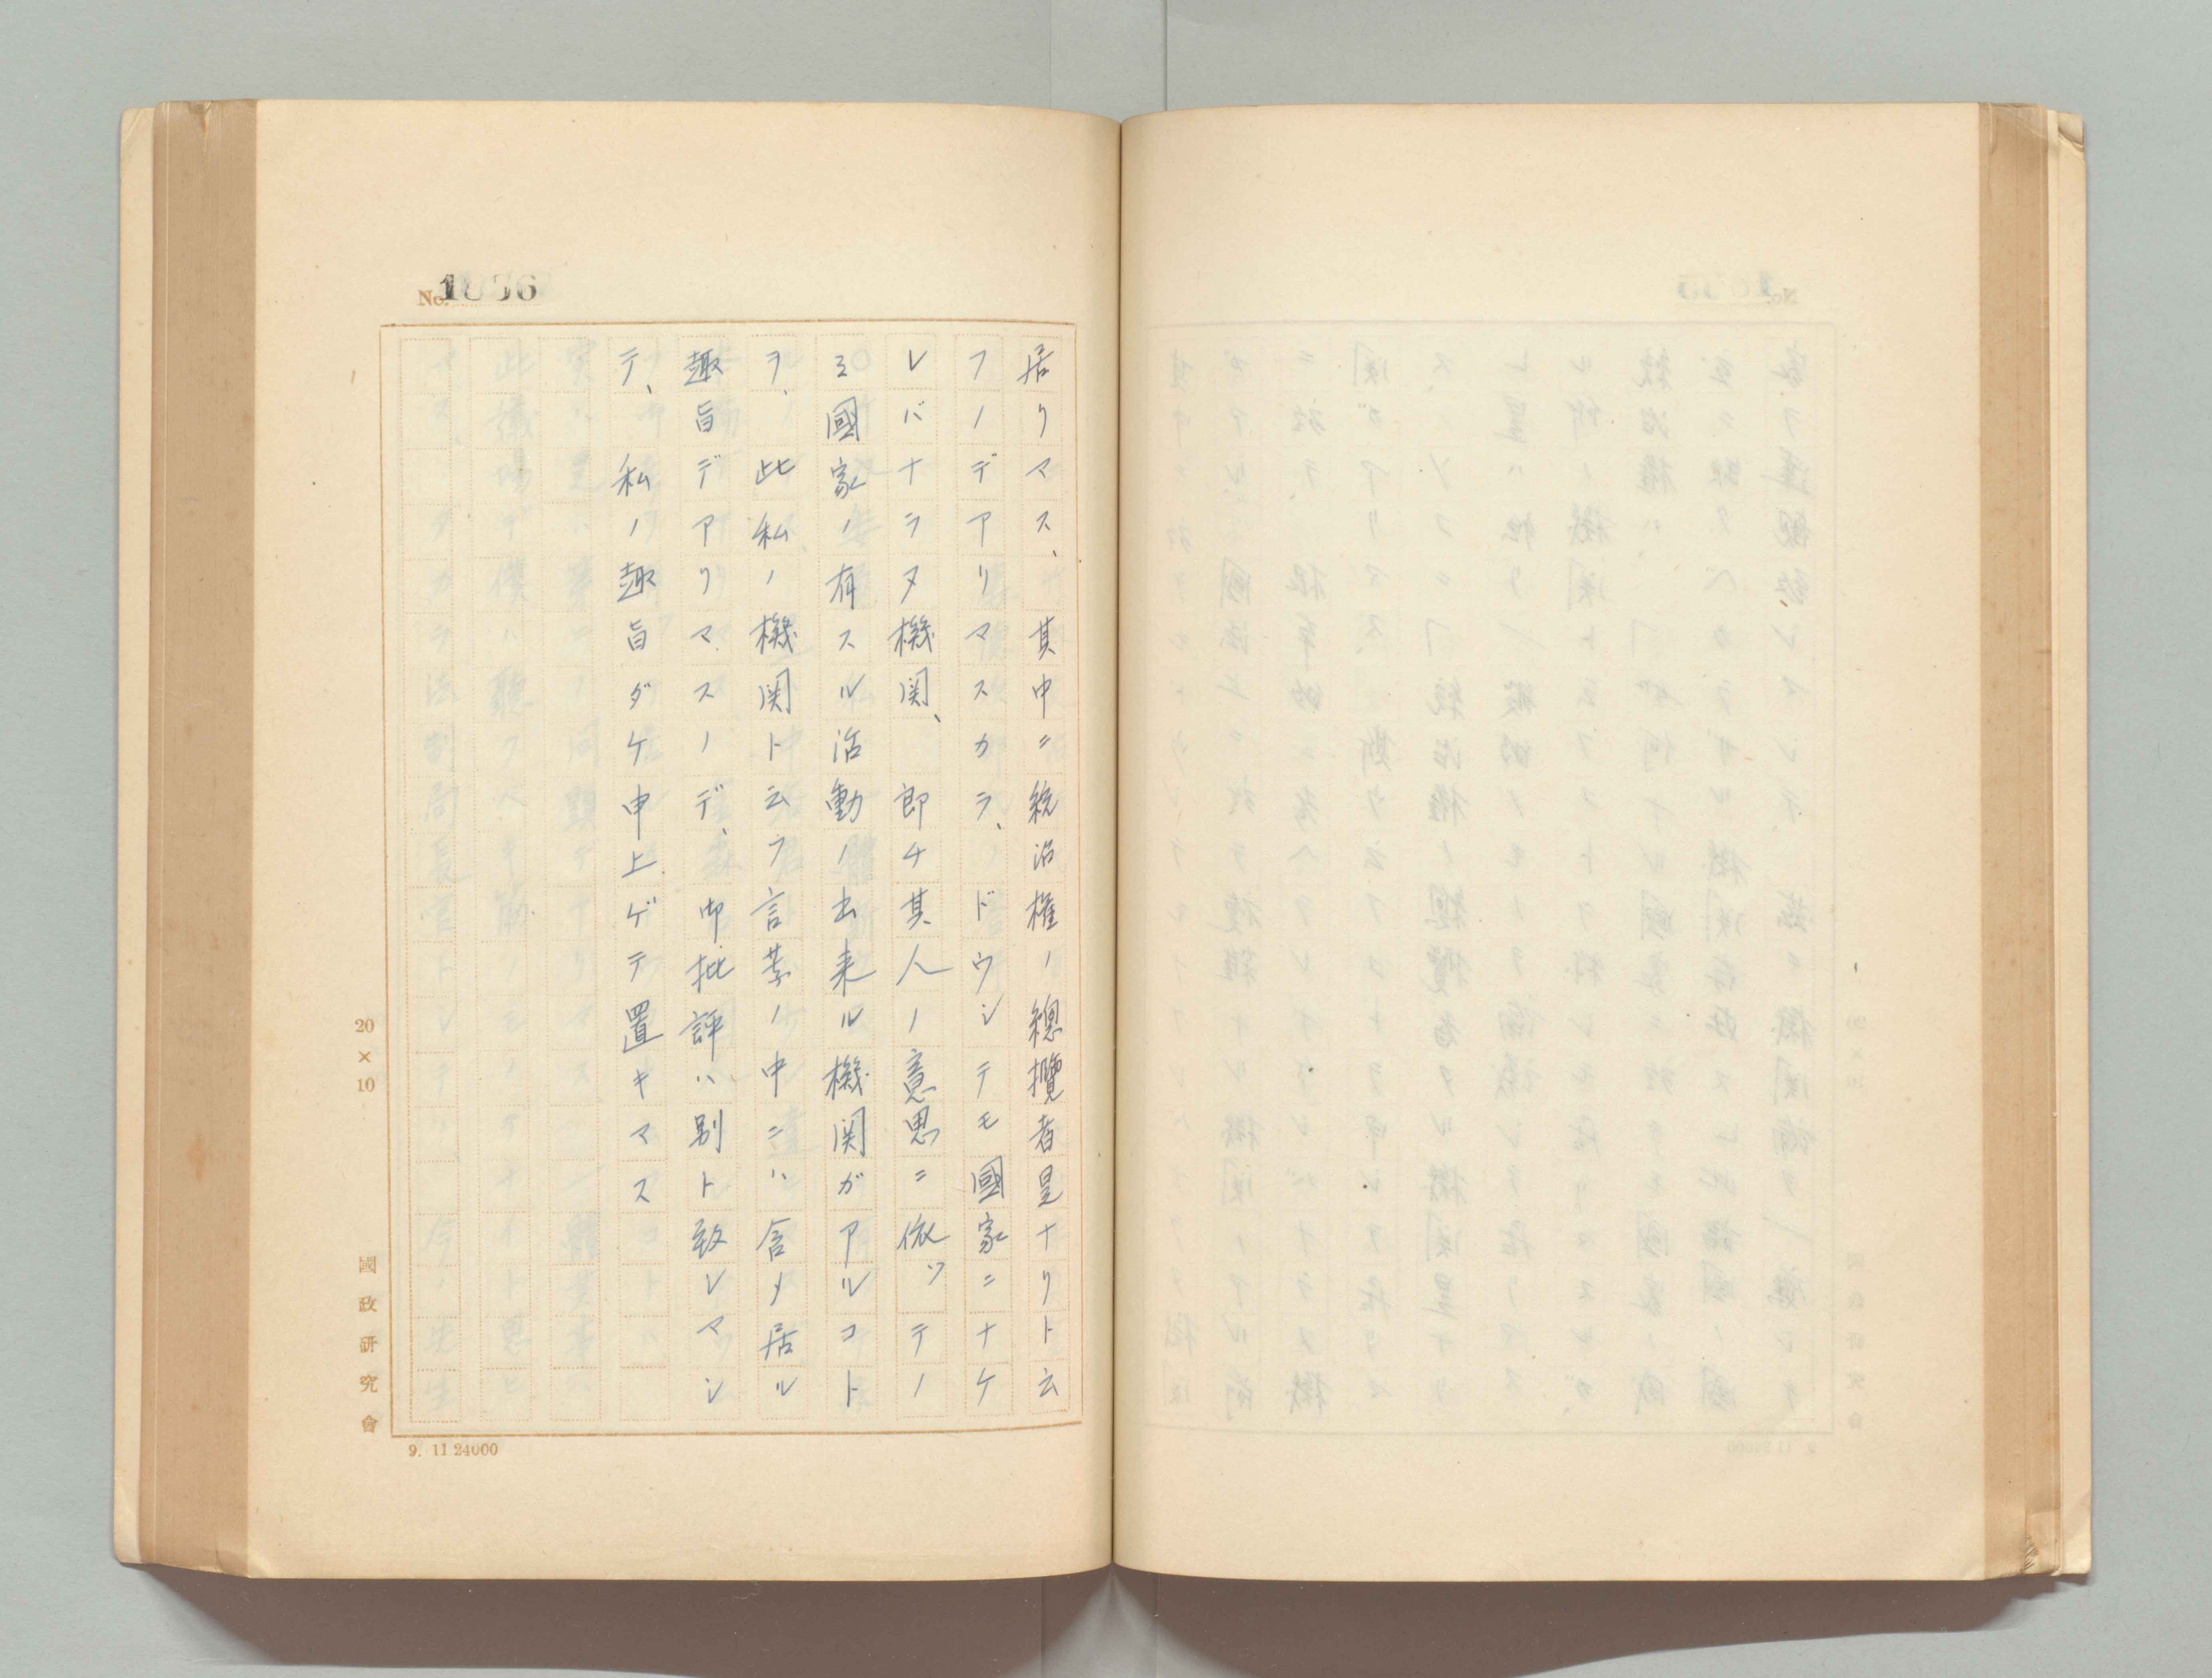 No. 1036
居リマス、其中ニ統治権ノ總攬者是ナリト云
フノデアリマスカラ、ドウシテモ國家ニナケ
レバナラヌ機関、即チ其人ノ意思ニ依ツテノ
ミ國家ノ有スル活動ノ出来ル機関ガアルコト
ヲ、此私ノ機関ト云フ言葉ノ中ニハ含メ居ル
趣旨デアリマスノデ、御批評ハ別ト致シマシ
テ、私ノ趣旨ダケ申上ゲテ置キマス
20×10
國政研究會
9. 11 24000